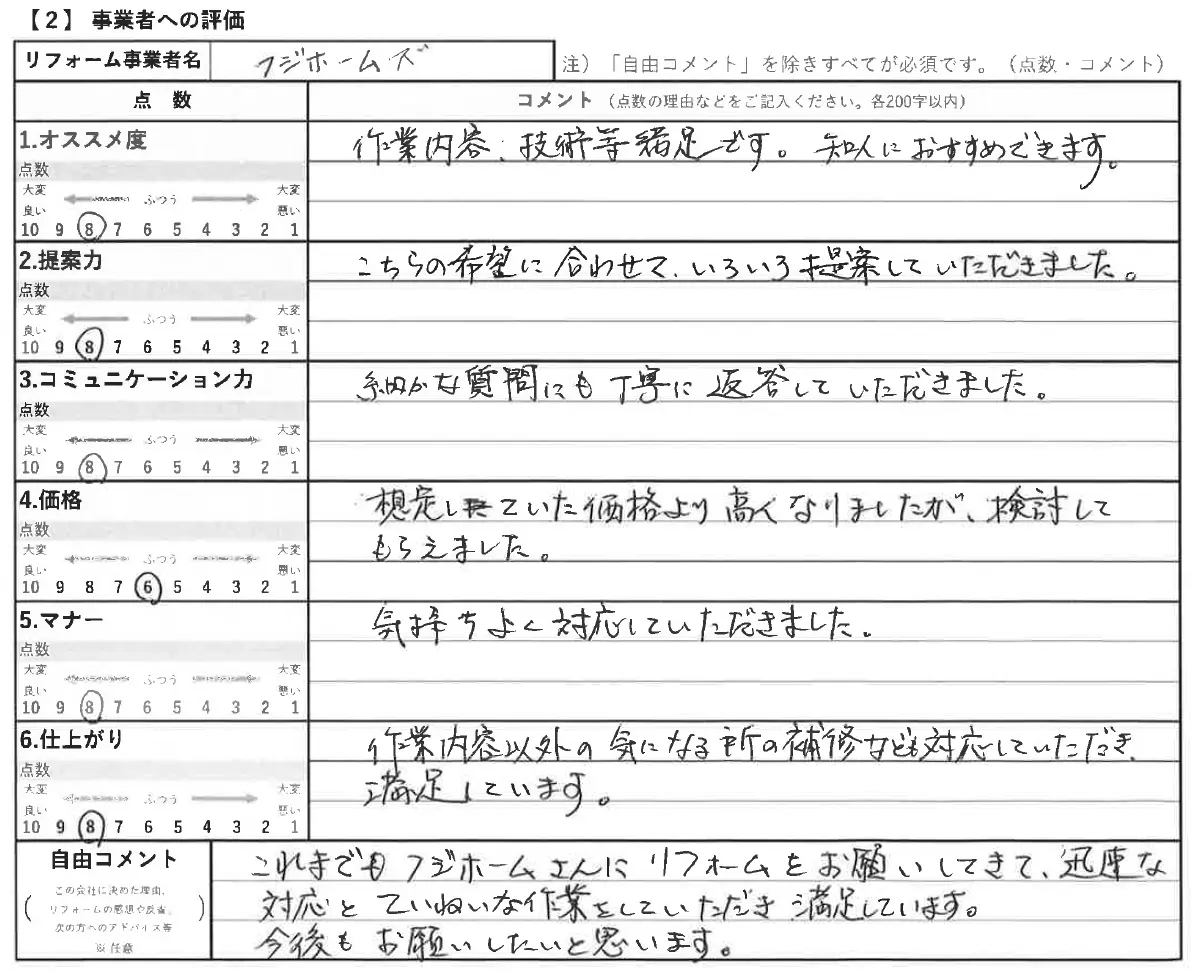 【2】 事業者への評価
リフォーム事業者名 フジホームズ 注）「自由コメント」を除きすべてが必須です。（点数・コメント）
点 数 コメント （点数の理由などをご記入ください。各200字以内）
1.オススメ度 作業内容、技術等満足です。知人におすすめできます。
点数
大変 ふつう 大変
良い 悪い
10 9 8 7 6 5 4 3 2 1
2.提案力 こちらの希望に合わせて、いろいろ提案していただきました。
点数
大変 ふつう 大変
良い 悪い
10 9 8 7 6 5 4 3 2 1
3.コミュニケーション力 細かな質問にも丁寧に返答していただきました。
点数
大変 ふつう 大変
良い 悪い
10 9 8 7 6 5 4 3 2 1
4.価格 想定していた価格より高くなりましたが、検討して
もらえました。
点数
大変 ふつう 大変
良い 悪い
10 9 8 7 6 5 4 3 2 1
5.マナー 気持ちよく対応していただきました。
点数
大変 ふつう 大変
良い 悪い
10 9 8 7 6 5 4 3 2 1
6.仕上がり 作業内容以外の気になる所の補修なども対応していただき、
満足しています。
点数
大変 ふつう 大変
良い 悪い
10 9 8 7 6 5 4 3 2 1
自由コメント
この会社に決めた理由、
リフォームの感想や反省、
次の方へのアドバイス等
※任意
これまでもフジホームさんにリフォームをお願いしてきて、迅速な
対応とていねいな作業をしていただき満足しています。
今後もお願いしたいと思います。